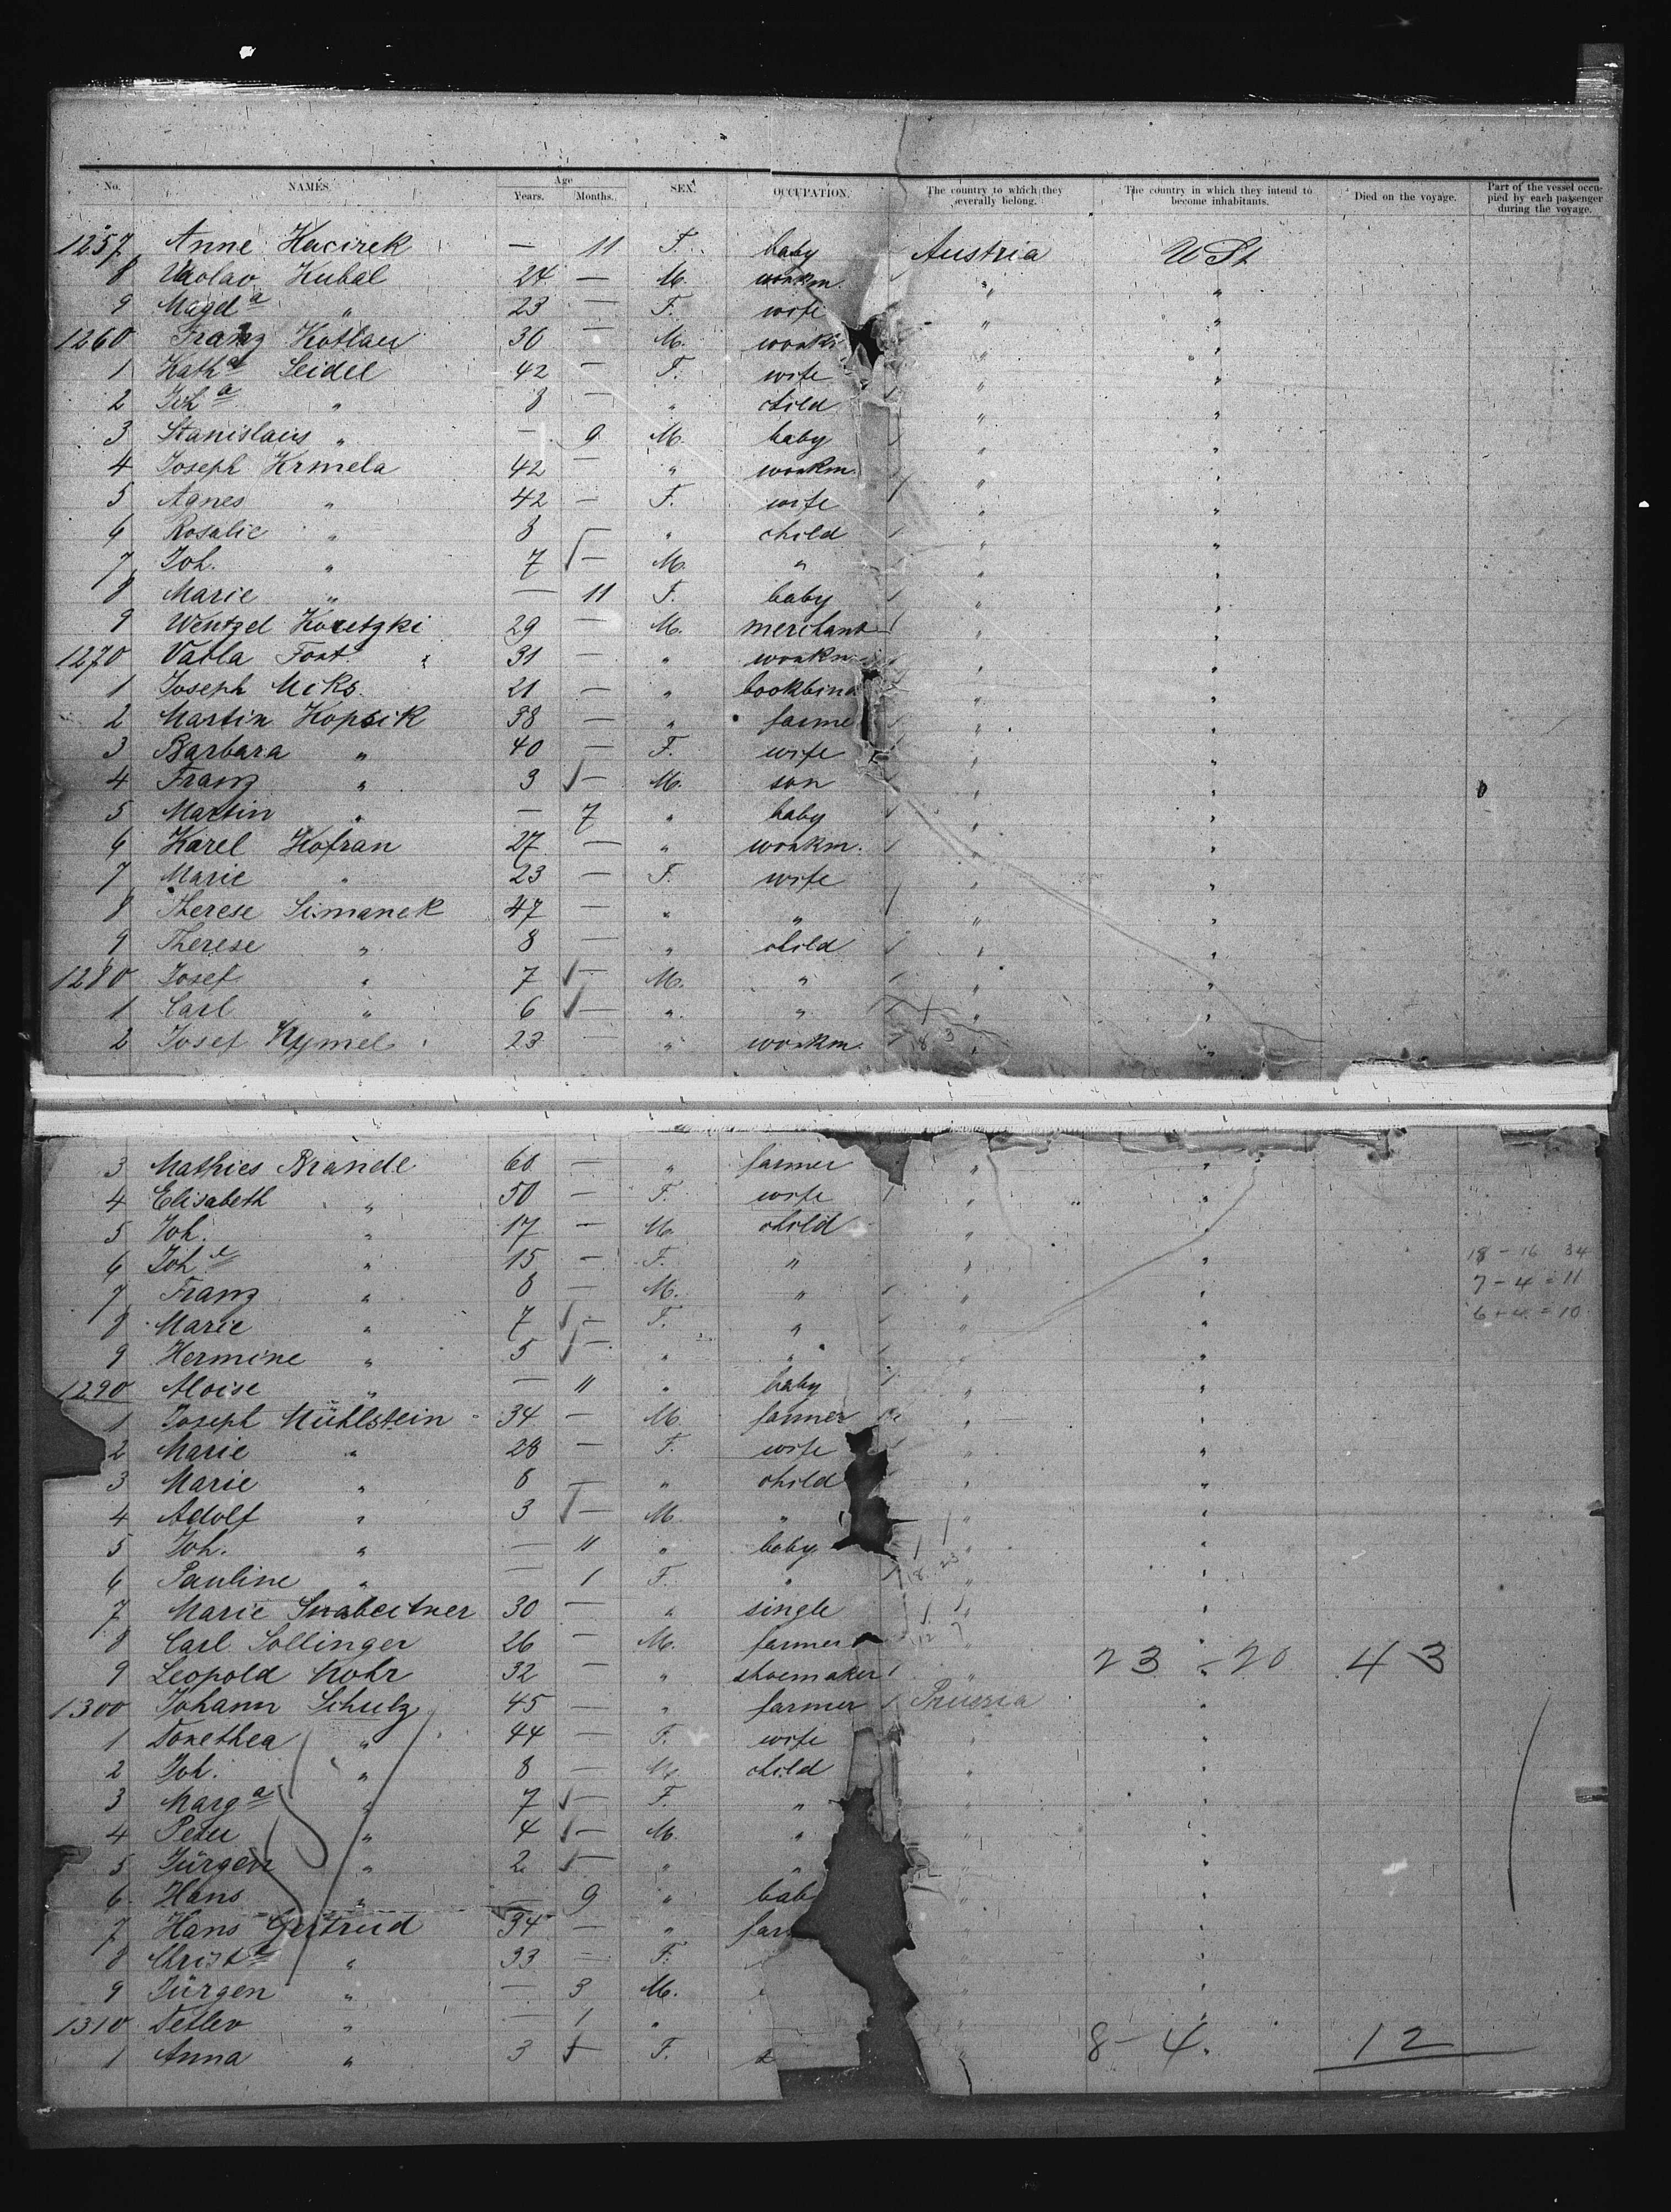 No. NAMES. Age Years. Months. SEX. OCCUPATION. The country to which they severally belong. The country in which they intend to become inhabitants. Died on the voyage. Part of the vessel occupied by each passenger during the voyage.
1257 Anne Hacirek — 11 F. baby Austria U St
8 Vaolav Kubal 24 — M. workm. " "
9 Magda " 23 — F. wife " "
1260 Franz Kotlau 30 — M. work " "
1 Katha Seidel 42 — F. wife " "
2 Joha " 8 — " child " "
3 Stanislaus " — 9 M. baby " "
4 Joseph Krmela 42 — " workm. " "
5 Agnes " 42 — F. wife " "
6 Rosalie " 8 — " child " "
7 Joh. " 7 — M. " " "
8 Marie " — 11 F. baby " "
9 Wentzel Koretzki 29 — M. merchant " "
1270 Vavla Fort 31 — " workm. " "
1 Joseph Miks. 21 — " bookbind " "
2 Martin Kopsik 38 — " farme " "
3 Barbara " 40 — F. wife " "
4 Franz " 3 — M. son " "
5 Martin " — 7 " baby " "
6 Karel Hofran 27 — " workm. " "
7 Marie " 23 — F. wife " "
8 Therese Simanek 47 — " " " "
9 Therese " 8 — " child " "
1280 Josef " 7 — M. " " "
1 Carl " 6 — " " " "
2 Josef Hymel 23 — " workm. " "
3 Mathies Brandl 60 — " farmer " "
4 Elisabeth " 50 — F. wife " "
5 Joh. " 17 — M. child " "
6 Johe " 15 — F. " " " 18 - 16 34
7 Franz " 8 — M. " " " 7 - 4 = 11
8 Marie " 7 — F. " " " 6 + 4 = 10
9 Hermine " 5 — " " " "
1290 Aloise " — 11 " baby " "
1 Joseph Mühlstein 34 — M. farmer " "
2 Marie " 28 — F. wife " "
3 Marie " 8 — " child " "
4 Adolf " 3 — M. " " "
5 Joh. " — 11 " baby " "
6 Pauline " — 1 F. " " "
7 Marie 30 — " single " "
8 Carl Sollinger 26 — M. farmer " "
9 Leopold Mohr 32 — " shoemaker " " 23 - 20 43
1300 Johann Schulz 45 — " farmer Prussia "
1 Dorethea " 44 — F. wife " "
2 Joh. " 8 — M. child " "
3 Marga " 7 — F. " " "
4 Peter " 4 — M. " " "
5 Jürgen " 2 — " " " "
6 Hans " — 9 " bab " "
7 Hans Gertrud 34 — " far "
8 Christa " 33 — F. "
9 Jürgen " — 3 M. " "
1310 Detlev " — 1 " " "
1 Anna " 3 — F. " 8 - 4. 12